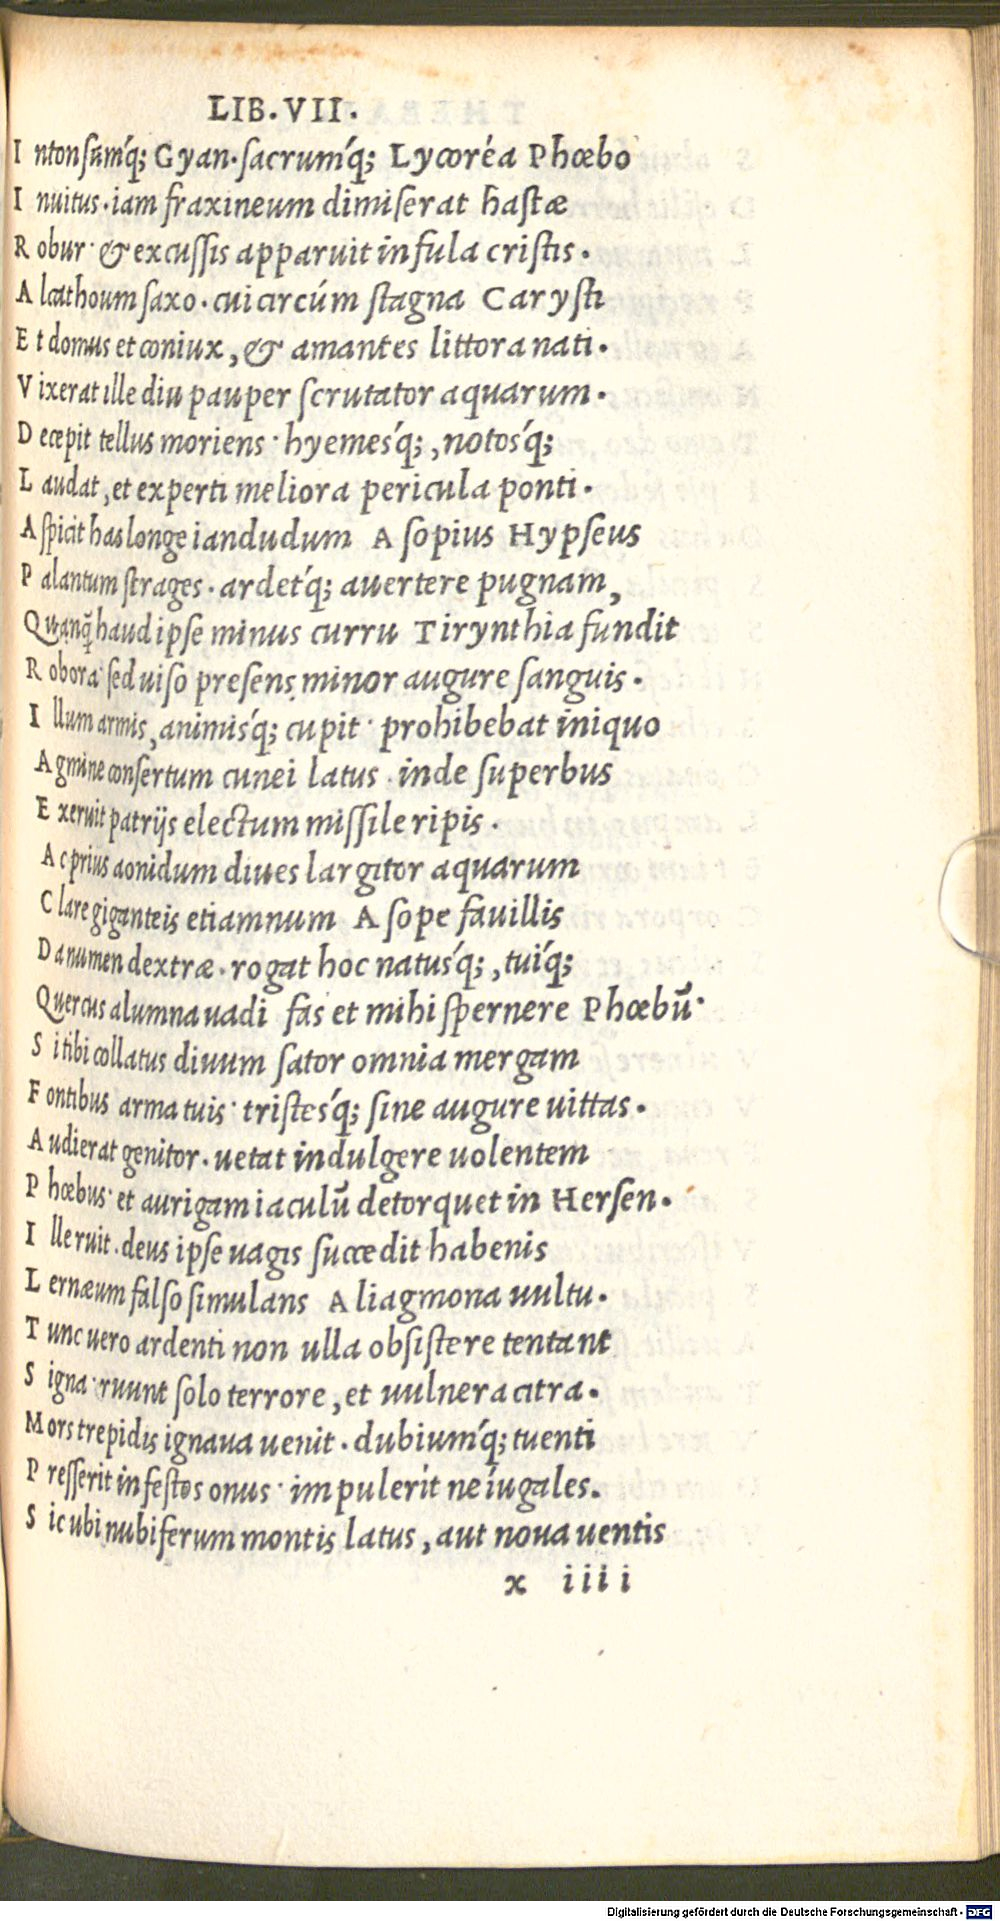 LIB. VII.
I ntonsũmq́; Gyan. sacrumq́; Lycoréa Phœbo
I nuitus. iam fraxineum dimiserat hastæ
R obur· & excussis apparuit infula cristis.
A lcathoum saxo. cui circúm stagna Carysti
E t domus et coniux, & amantes littora nati.
V ixerat ille diu pauper scrutator aquarum.
D ecepit tellus moriens· hyemesq́;, notosq́;
L audat, et experti meliora pericula ponti.
A spicit has longe iandudum Asopius Hypseus
P alantum strages. ardetq́; auertere pugnam,
Q uanq̃ haud ipse minus curru Tirynthia fundit
R obora· sed uiso presens minor augure sanguis.
I llum armis, animisq́; cupit· prohibebat iniquo
A gmine consertum cunei latus. inde superbus
E xeruit patrijs electum missile ripis.
A c prius aonidum diues largitor aquarum
C lare giganteis etiamnum Asope fauillis
D a numen dextræ. rogat hoc natusq́;, tuiq́;
Q uercus alumna uadi fas et mihi spernere Phœbũ·
S i tibi collatus diuum sator omnia mergam
F ontibus arma tuis· tristesq́; sine augure uittas.
A udierat genitor. uetat indulgere uolentem
P hœbus· et aurigam iaculũ detorquet in Hersen.
I lle ruit. deus ipse uagis succedit habenis
L ernæum falso simulans Aliagmona uultu.
T unc uero ardenti non ulla obsistere tentant
S igna· ruunt solo terrore, et uulnera citra.
M ors trepidis ignaua uenit. dubiumq́; tuenti
P resserit infestos onus· impulerit ne iugales.
S ic ubi nubiferum montis latus, aut noua uentis
x iiii
Digitalisierung gefördert durch die Deutsche Forschungsgemeinschaft - DFG